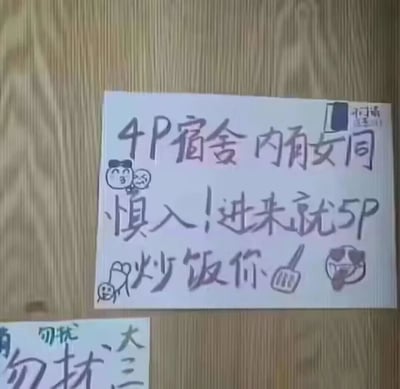 4P宿舍 内有女同
慎入！进来就5P
炒饭你
勿扰
大
勿扰
三